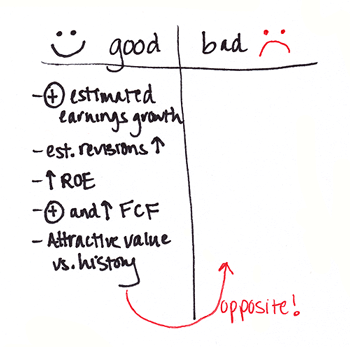 good bad
- ⊕ estimated
earnings growth
- est. revisions ↑
- ↑ ROE
- ⊕ and ↑ FCF
- Attractive value
vs. history
opposite!